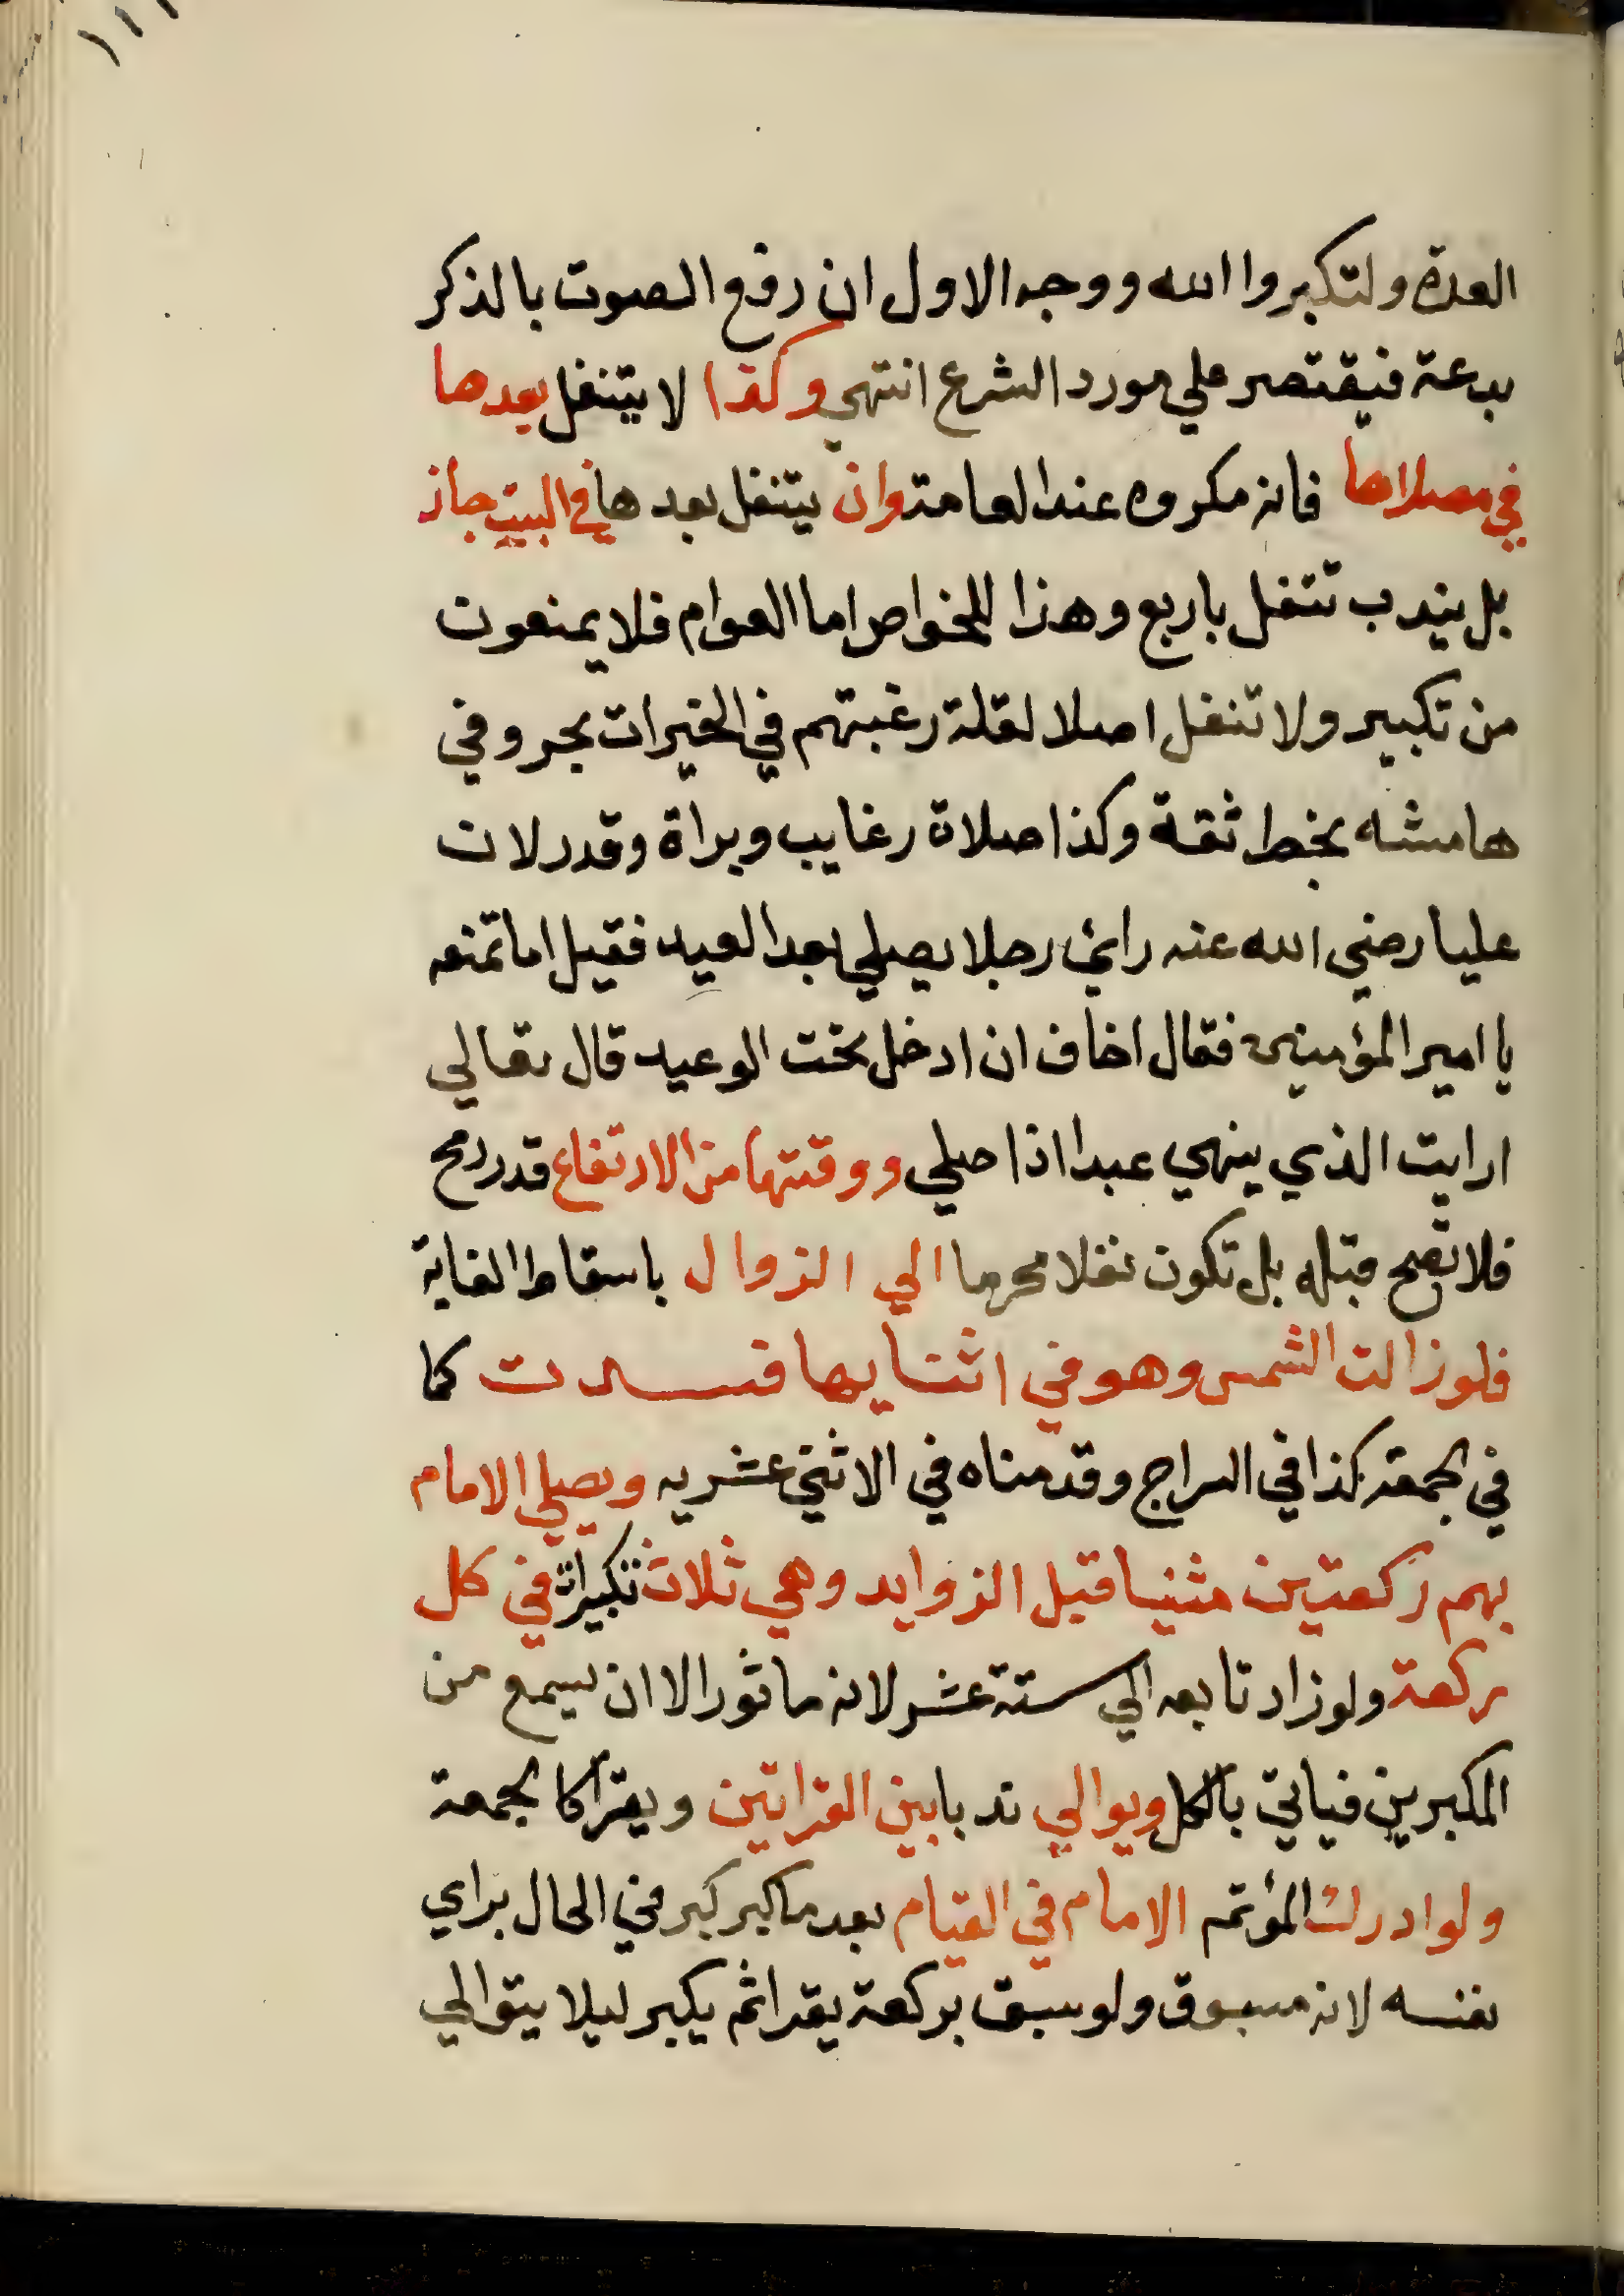 ١١١
العدة ولتكبروا الله ووجه الاول ان رفع الصوت بالذكر
بدعة فيقتصر علي مورد الشرع انتهي وكذا لا يتنفل بعدها
في مصلاها فانه مكروه عند العامة وان يتنفل بعدها في البيت جاز
بل يندب تنفل باربع وهذا للخواص اما العوام فلا يمنعون
من تكبير ولا تنفل اصلا لقلة رغبتهم في الخيرات بحر وفي
هامشه بخط ثقة وكذا صلاة رغايب وبراة وقدر لان
عليا رضي الله عنه رائ رجلا يصلي بعد العيد فقيل اما تمنعه
يا امير المؤمنين فقال اخاف ان ادخل تحت الوعيد قال تعالي
ارايت الذي ينهي عبدا اذا صلي ووقتها من الارتفاع قدر رمح
فلا تصح قبله بل تكون نفلا محرما الي الزوال باسقاط الغاية
فلو زالت الشمس وهو في اثنايها فسدت كما
في الجمعة كذا في السراج وقدمناه في الاثني عشريه ويصلي الامام
بهم ركعتين مثنيا قبل الزوايد وهي ثلاث تكبيرات في كل
ركعة ولو زاد تابعه الي ستة عشر لانه ماثور الا ان يسمع من
المكبرين فياتي بالكل ويوالي ندبا بين القراتين ويقرا كالجمعة
ولو ادرك المؤتم الامام في القيام بعد ما كبر كبر في الحال براي
نفسه لانه مسبوق ولو سبق بركعة يقرا ثم يكبر ليلا يتوالي